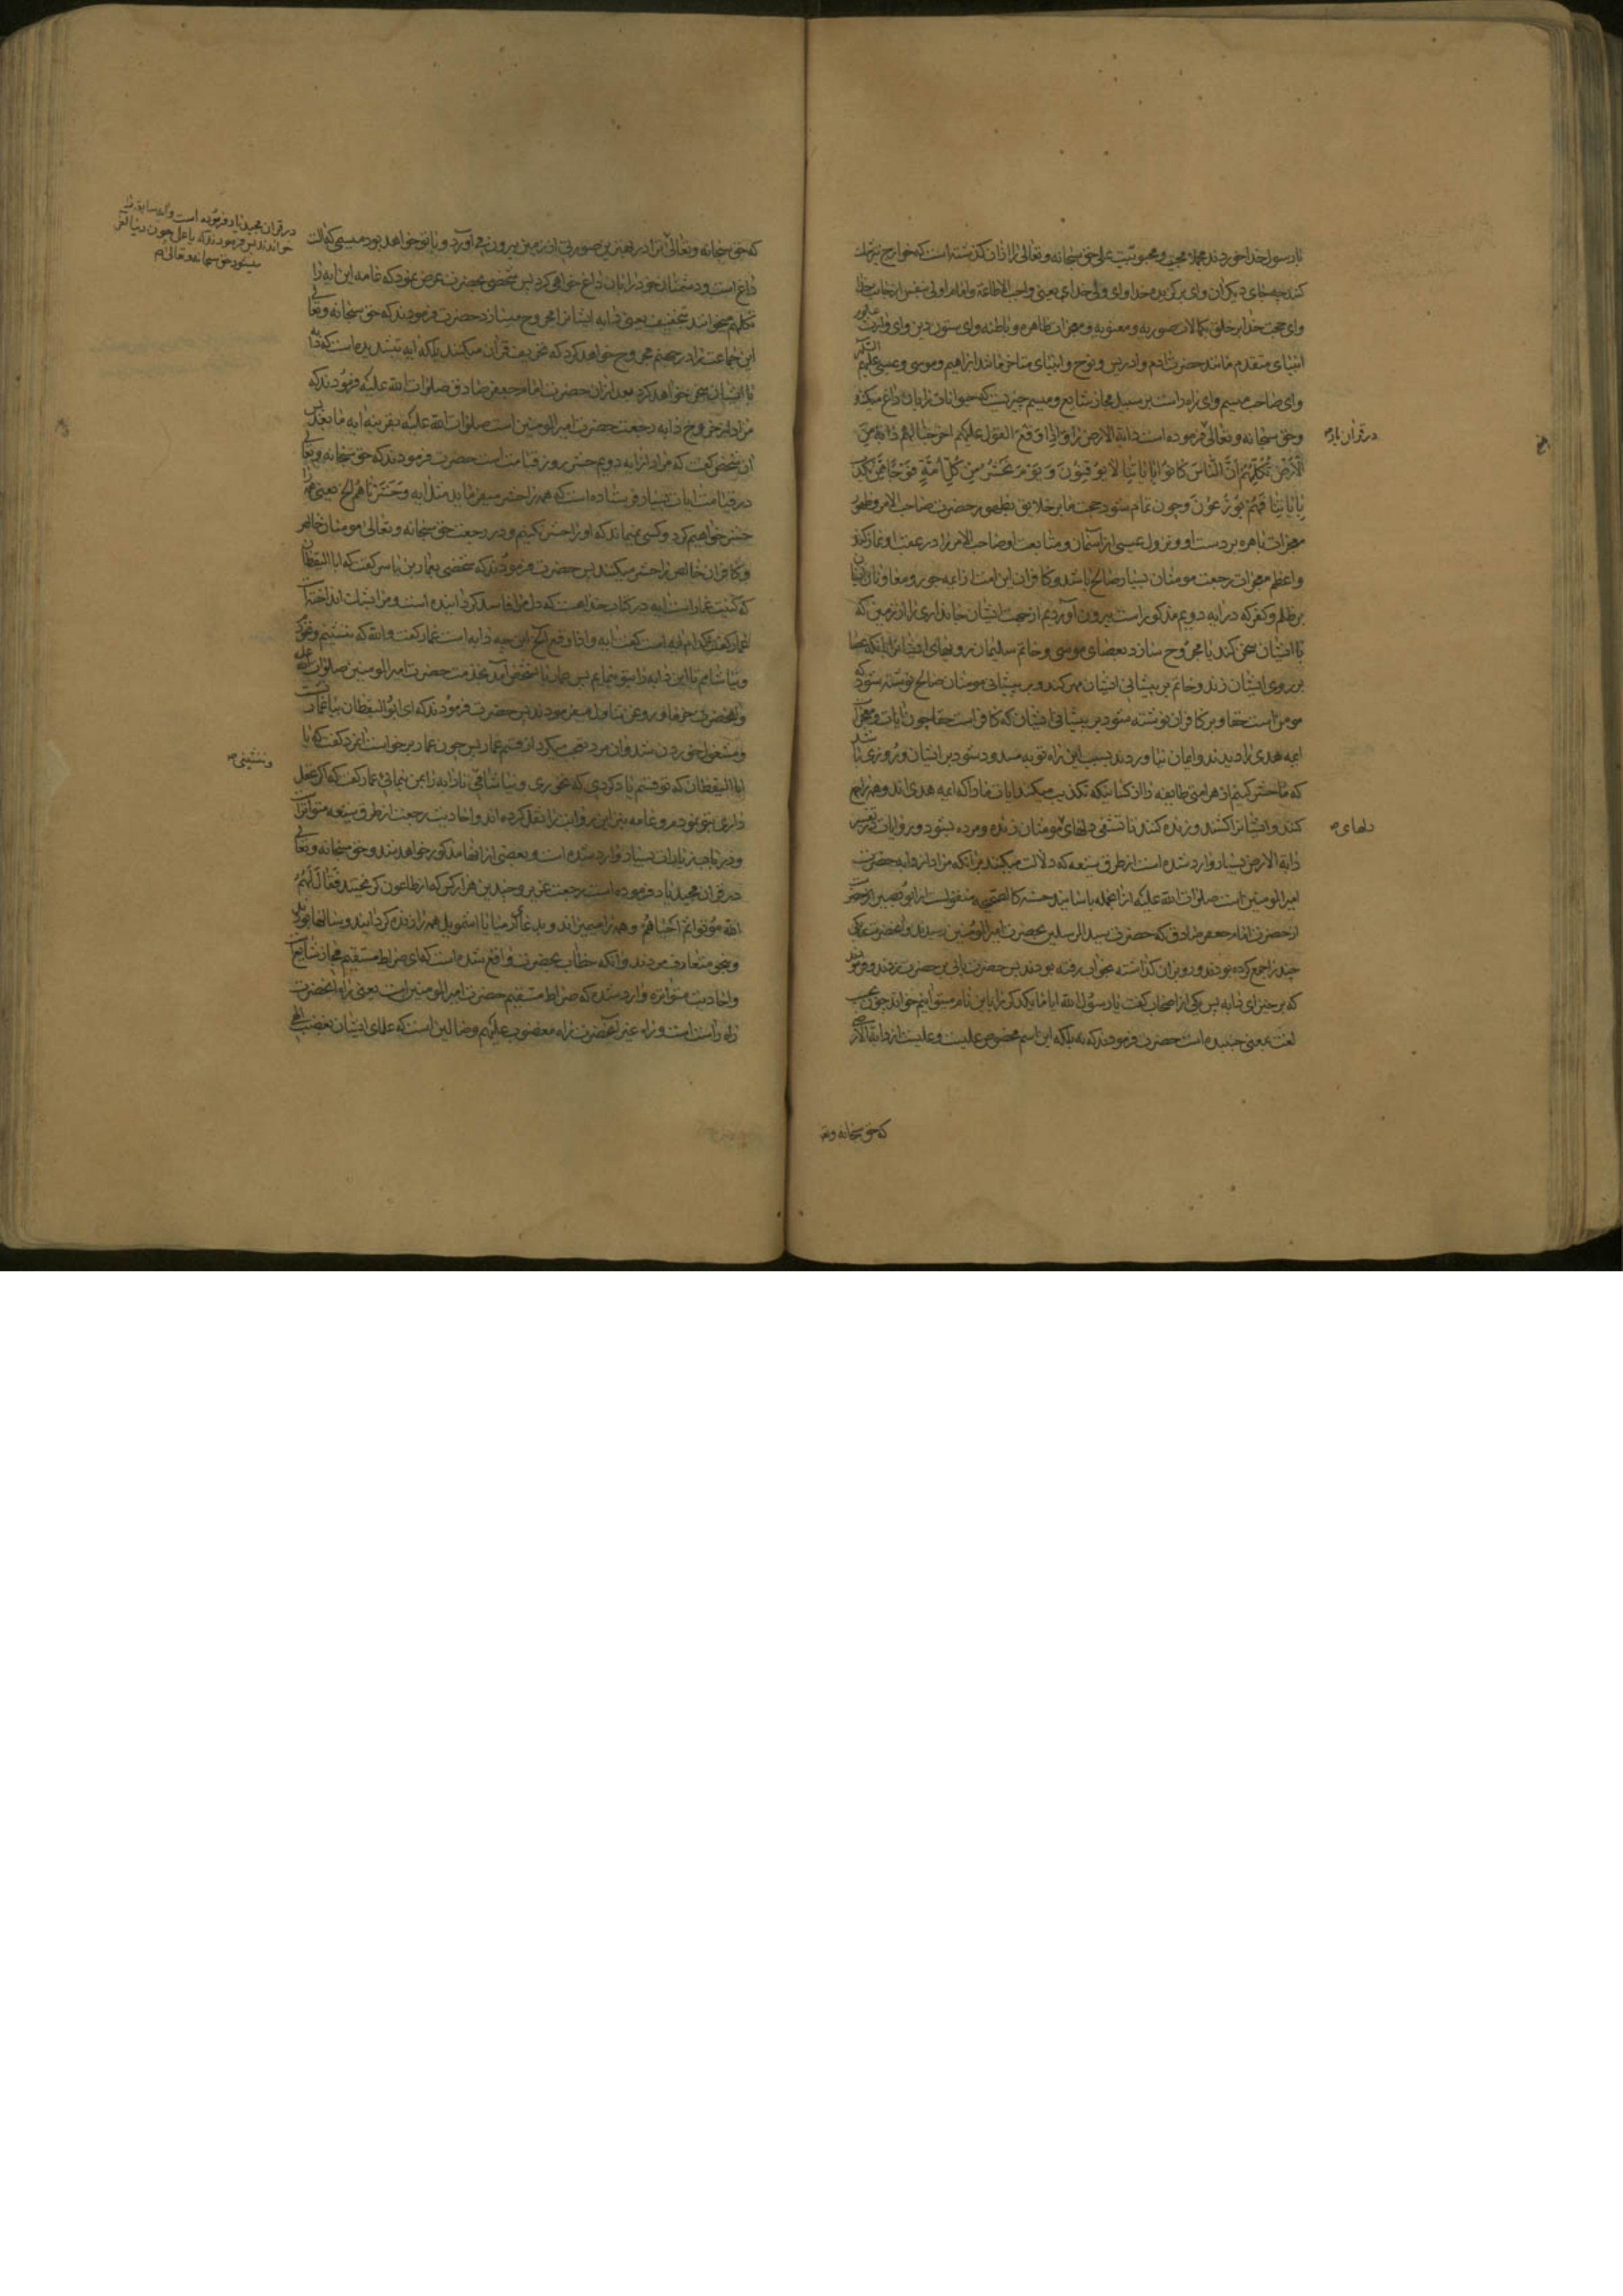 با رسول خدا خوردند مجملا محبی و محبوبیت علی حق سبحانه و تعالی را از آن گذشته است که خوارج نیز
کنند چه جای دیگران و ای برگزیده خدا و ای ولی خدای یعنی واجب الاطاعة و امام اولی بنفس از جانب خدا
و ای حجت خدا بر خلق بکمالات صوریه و معنویه و معجزات ظاهره و باطنه و ای ستون دین و ای وارث علوم
انبیای متقدم مانند حضرت آدم و ادریس و نوح و انبیای متاخر مانند ابراهیم و موسی و عیسی علیهم السلام
و ای صاحب میسم و ای راه راست بر سبیل مجاز شایع و میسم چیزیست که حیوانات را بان داغ میکنند
و حق سبحانه و تعالی فرموده است دابة الارض را وَاِذا وَقَعَ القَولُ عَلَیهِم اَخرَجنا لَهُم دابَةً مِنَ
الاَرضِ تُکَلِّمُهُم اَنَّ النّاسَ کانُوا بِایاتِنا لا یُوقِنُونَ وَ یَومَ نَحشُرُ مِن کُلِّ اُمَّةٍ فَوجًا مِمَّن یُکَذِّبُ
بِایاتِنا فَهُم یُوزَعُونَ و چون تمام شود حجت ما بر خلایق بظهور حضرت صاحب الامر و ظهور
معجزات باهره بر دست او و نزول عیسی از آسمان و متابعت او صاحب الامر را و در عقب او نماز کند
و اعظم معجزات رجعت مومنان بسیار صالح باشد و کافران این امت از ائمه جور و معاونان ایشان
بر ظلم و کفر که در آیه دویم مذکور است بیرون آوردیم از جهت ایشان جانداری را از زمین که
با ایشان سخن کند یا مجروح سازد بعصای موسی و خاتم سلیمان بر رویهای ایشان را بانکه عصا
بر روی ایشان زند و خاتم بر پیشانی ایشان مهر کند و بر پیشانی مومنان صالح نوشته شود که
مومن است حقا و بر کافران نوشته شود بر پیشانی ایشان که کافر است حقا چون ایات و معجزات
ایمه هدی را دیدند و ایمان نیاوردند بسبب این راه توبه مسدود شود بر ایشان و روزی باشد
که ما حشر کنیم از هر امتی طایفه را از کسانیکه تکذیب میکنند ایات ما را که ایمه هدی اند و همه را بهم
کنند و ایشان را کشند و زنده کنند تا تشفی دلهای مومنان زنده و مرده بشود و روایات در تفسیر
دابة الارض بسیار وارد شده است از طرق شیعه که دلالت میکند بر انکه مراد از دابه حضرت
امیر المومنین است صلوات الله علیه از انجمله باسانید حسنه کالصحیحه منقولست از ابو بصیر از حضرت
از حضرت امام جعفر صادق که حضرت سید المرسلین بحضرت امیر المومنین رسیدند و انحضرت ریگی
چند را جمع کرده بودند و رو بران گذاشته بخواب رفته بودند پس حضرت پائی بر حضرت زدند و فرمودند
که برخیز ای دابه پس یکی از اصحاب گفت یا رسول الله ایا ما یکدیگر را باین نام میتوانیم خواند چون بحسب
لغت بمعنی جنبنده است حضرت فرمودند که نه بلکه این اسم مخصوص علیست و علیست از دابة الارض
در قران یاد
دلهای
که حق سبحانه و تعا
که حق سبحانه و تعالی ترا در بهترین صورتی از زمین بیرون خواهد آورد و با تو خواهد بود میسمی که الت
داغ است و دشمنان خود را بان داغ خواهی کرد پس شخصی بحضرت عرض نمود که عامه این ایه را
تکلمهم میخوانند بتخفیف یعنی دابه ایشانرا مجروح میسازد حضرت فرمودند که حق سبحانه و تعالی
این جماعت را در جهنم مجروح خواهد کرد که تحریف قران میکنند بلکه ایه بتشدیده است که دابه
با ایشان سخن خواهد کرد بعد ازان حضرت امام جعفر صادق صلوات الله علیه فرمودند که
مراد از خروج دابه رجعت حضرت امیر المومنین است صلوات الله علیه بقرینه ایه ما بعد پس
ان شخص گفت که مراد از ایه دویم حشر روز قیامت است حضرت فرمودند که حق سبحانه و تعالی
در قیامت ایات بسیار فرستاده است که همه را حشر میفرماید مثل ایه وَحَشَرناهُم الخ یعنی همه را
حشر خواهیم کرد و کسی نمیماند که او را حشر نکنیم و در رجعت حق سبحانه و تعالی مومنان خالص
و کافران خالص را حشر میکنند پس حضرت فرمودند که شخصی بعمار بن یاسر گفت که ابا الیقظان
که کنیت عمار است ایه در کتاب خداهست که دل مرا فاسد گردانیده است و مرا بشک انداخته است
عمار گفت کدام ایه است گفت ایه و اذا وقع الخ این چه دابه است عمار گفت والله که ننشینم و نخورم
و نیاشامم تا این دابه را بتو بنمایم پس عمار با شخص آمد بخدمت حضرت امیر المومنین صلوات الله علیه
و انحضرت خرما و روغن تناول میفرمودند پس حضرت فرمودند که ای ابو الیقظان بیا عمار نشست
و مشغول خوردن شد و ان مرد تعجب میکرد از قسم عمار پس چون عمار برخواست انمرد گفت که یا
ابا الیقظان که تو قسم یاد کردی که نخوری و نیاشامی تا دابه را بمن بنمائی عمار گفت که اگر عقل
داری بتو نمودم و عامه نیز این روایت را نقل کرده اند و احادیث رجعت از طرق شیعه متواتر است
و در باب زیارات بسیار وارد شده است و بعضی از انها مذکور خواهد شد و حق سبحانه و تعالی
در قران مجید یاد فرموده است رجعت عزیر و چندین هزار کس که از طاعون گریختند فَقالَ لَهُمُ
اللهُ مُوتُوا ثُمَّ اَحیاهُم و همه را میمیراند و بدعای ارمیا یا اشمویل همه را زنده گردانید و سالها بودند
و بنحو متعارف مردند و انکه خطاب بحضرت واقع شده است که ای صراط مستقیم مجاز شایع است
و احادیث متواتره وارد شده که صراط مستقیم حضرت امیر المومنین است یعنی راه انحضرت
راه راست است و راه غیر انحضرت راه مغضوب علیهم و ضالین است که علمای ایشان بغضب الهی
در قران مجید یاد فرموده است وایه سابقه را
خواندند پس فرمودند که یا علی چون دنیا آخر
میشود حق سبحانه و تعالی
و ننشینی